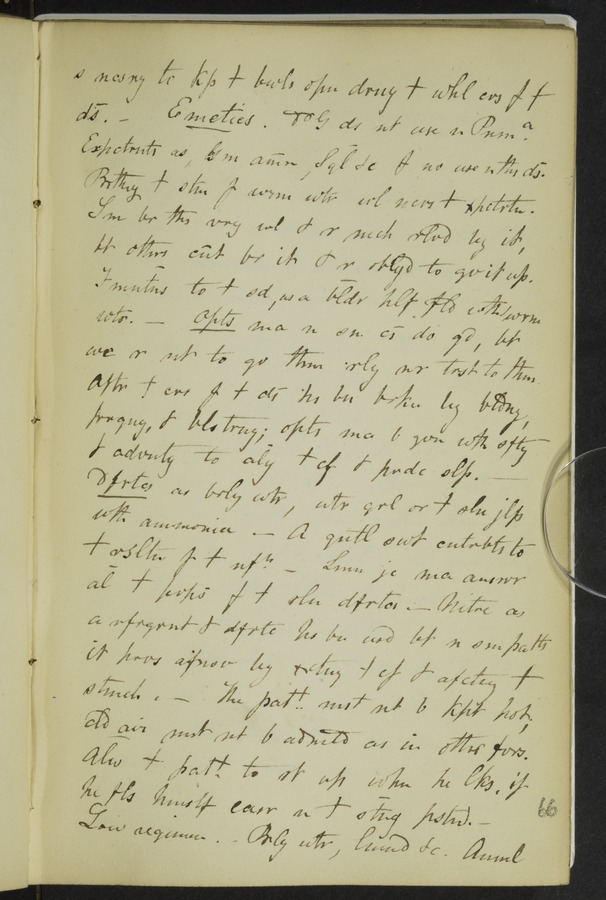 s ncsry to kp t bwls opn drng t whl crs f t
ds. - Emetics. Dr G ds nt use n Pnma.
Expctrnts as, Gm amn, Sql &c f no use n ths ds.
Brthng t stm f wrm wtr wl ncrs t xpctrtn.
Sm br ths vry wl & r mch rlvd by it,
bt othrs cnt br it & r oblgd to gv it up.
Fmntns to t sd, as a bldr hlf fld wth wrm
wtr. - Opts ma n sm cs do gd, bt
we r nt to gv thm rly nr trst to thm
Aftr t crs f t ds hs bn brkn by bldng,
prgng, & blstrng; opts ma b gvn wth sfty
& advntg to aly t cf & prdc slp. -
Dfrtcs as brly wtr, wtr grl or t sln jlp
wth ammonia - A gntl swt cntrbts to
t rsltn f t nfn - Lmn jc ma answr
al t prps f t sln dfrtcs. - Nitre as
a rfrgrnt & dfrtc hs bn usd bt n sm patts
it prvs injrs by xctng t cf & afctng t
stmch. - The patt. mst nt b kpt hot,
cld air mst nt b admtd as in othr fvrs.
Alw t patt to st up whn he lks, if
he fls himslf easr n t stng pstr. -
Low regimen. - Brly wtr, lnsd &c. Anml
66